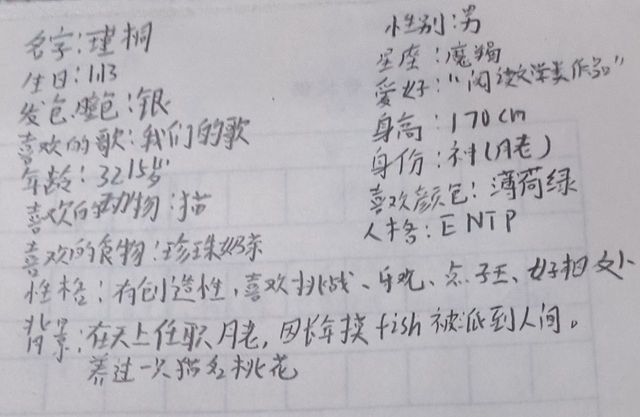 名字:瑾桐
生日:1.13
发色.瞳色:银
喜欢的歌:我们的歌
年龄:3215岁
喜欢的动物:猫
喜欢的食物:珍珠奶茶
性别:男
星座:魔羯
爱好:“阅读文学类作品”
身高:170cm
身份:神(月老)
喜欢颜色:薄荷绿
人格:ENTP
性格:有创造性,喜欢挑战、乐观、点子王、好相处
背景:在天上任职月老,因长年摸fish被派到人间。
养过一只猫名桃花